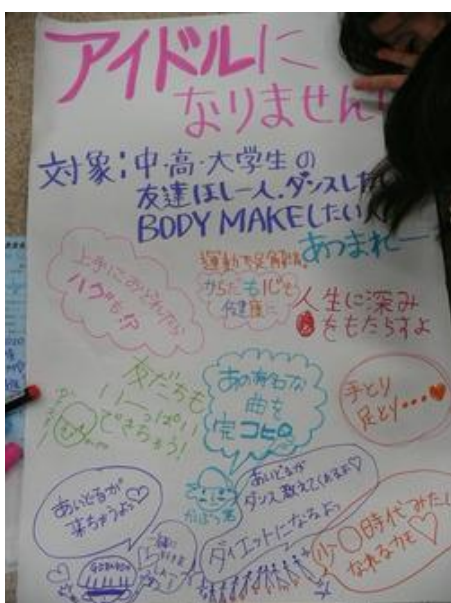 アイドルに
なりません
対象:中・高・大学生の
友達ほしー人、ダンスした
BODY MAKEしたい人
あつまれー
上手におどれたら
ハグも!?
運動不足解消!
からだも心も
健康に
人生に深み
をもたらすよ
友だちも
いーっぱい
できちゃう!
あの有名な
曲を
完コピ
手とり
足とり…
あいどるが
来ちゃうよっ♡
あいどるが
ダンス教えてくれるよ♡
ダイエットになるよっ
少〇時代みたいに
なれるカモ♡